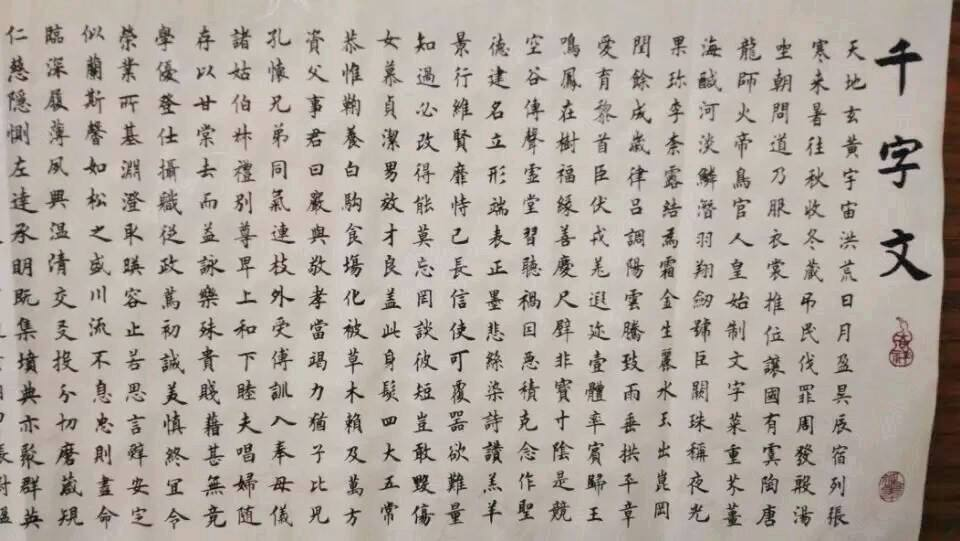 千字文
天地玄黃宇宙洪荒日月盈昃辰宿列張
寒来暑往秋收冬藏吊民伐罪周發殷湯
坐朝問道乃服衣裳推位讓國有虞陶唐
龍師火帝鳥官人皇始制文字菜重芥薑
海鹹河淡鱗潛羽翔劒號巨闕珠稱夜光
果珍李柰露結為霜金生麗水玉出崑岡
閏餘成歲律呂調陽雲騰致雨垂拱平章
愛育黎首臣伏戎羌遐迩壹體率賓歸王
鳴鳳在樹福緣善慶尺璧非寶寸陰是競
空谷傳聲虛堂習聽禍因惡積克念作聖
德建名立形端表正墨悲絲染詩讚羔羊
景行維賢靡恃己長信使可覆器欲難量
知過必改得能莫忘罔談彼短豈敢毀傷
女慕貞潔男效才良蓋此身髮四大五常
恭惟鞠養白駒食場化被草木賴及萬方
資父事君曰嚴與敬孝當竭力猶子比兒
孔懷兄弟同氣連枝外受傅訓入奉母儀
諸姑伯叔禮別尊卑上和下睦夫唱婦隨
存以甘棠去而益詠樂殊貴賤藉甚無竟
學優登仕攝職從政篤初誠美慎終宜令
榮業所基淵澄取暎容止若思言辭安定
似蘭斯馨如松之盛川流不息忠則盡命
臨深履薄夙興温清交友投分切磨箴規
仁慈隱惻左達承明既集墳典亦聚群英